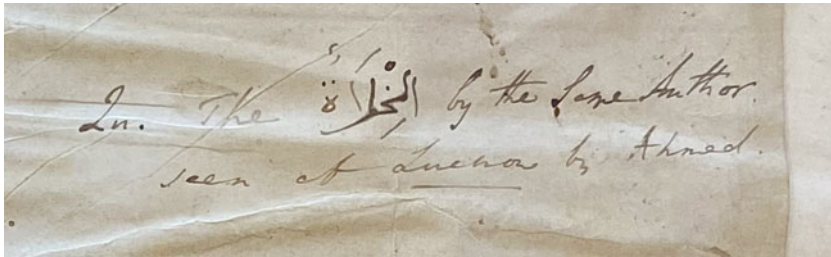 Qu. The by the Same Author.
seen at Lucnow by Ahmed.